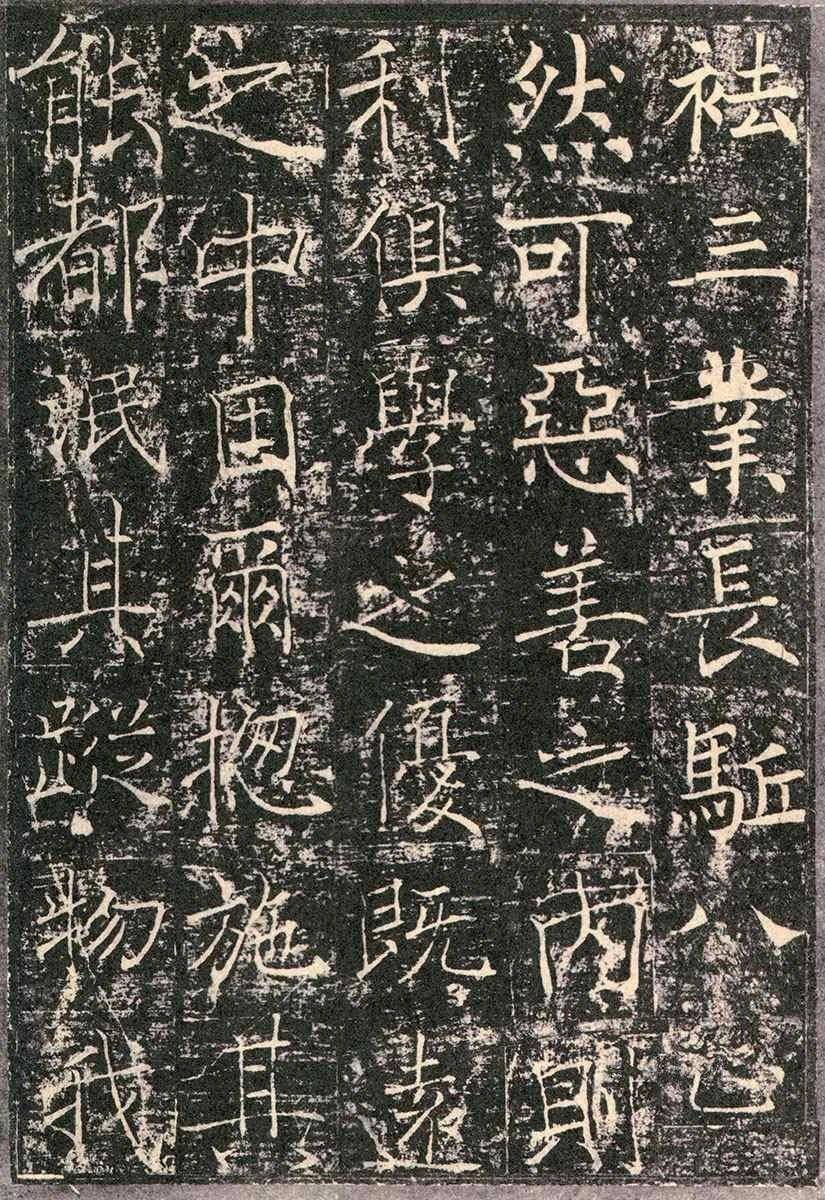 袪三業長駈八
然可惡善之內則
利俱學之優既遠
之中因爾揔施其
能都泯其蹤物我